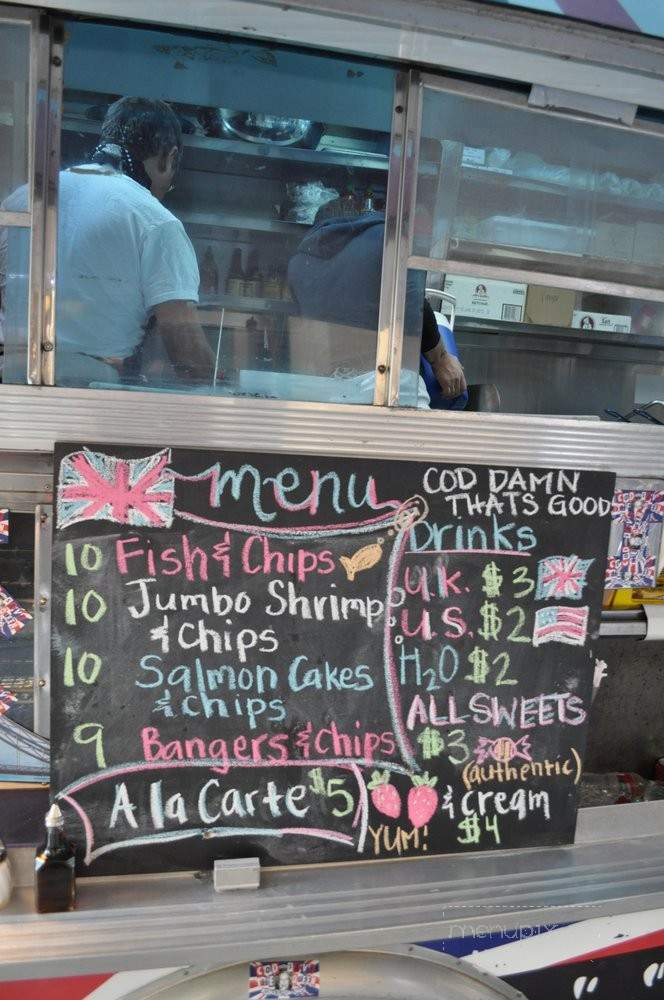 menu
10 Fish & Chips
10 Jumbo Shrimp
& chips
10 Salmon Cakes
& chips
9 Bangers & Chips
A la Carte $5
COD DAMN
THATS GOOD
Drinks
U.K. $3
U.S. $2
H2O $2
ALL SWEETS
$3
(authentic)
& cream
YUM! $4
menupix